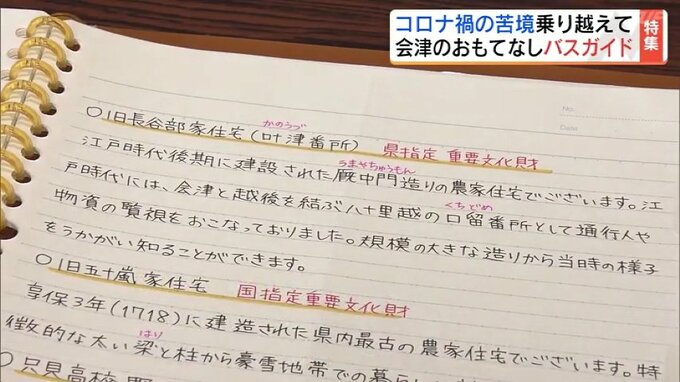 コロナ禍の苦境乗り越えて
会津のおもてなしバスガイド
特集
No.
Date
かのうづ
○旧長谷部家住宅(叶津番所) 県指定 重要文化財
うまやちゅうもん
江戸時代後期に建設された厩中門造りの農家住宅でございます。江
くちどめ
戸時代には、会津と越後を結ぶ八十里越の口留番所として通行人や
物資の監視をおこなっておりました。規模の大きな造りから当時の様子
をうかがい知ることができます。
○旧五十嵐家住宅 国指定重要文化財
享保3年(1718)に建造された県内最古の農家住宅でございます。特
はり
徴的な太い梁と柱から豪雪地帯での暮らし
○只見高校